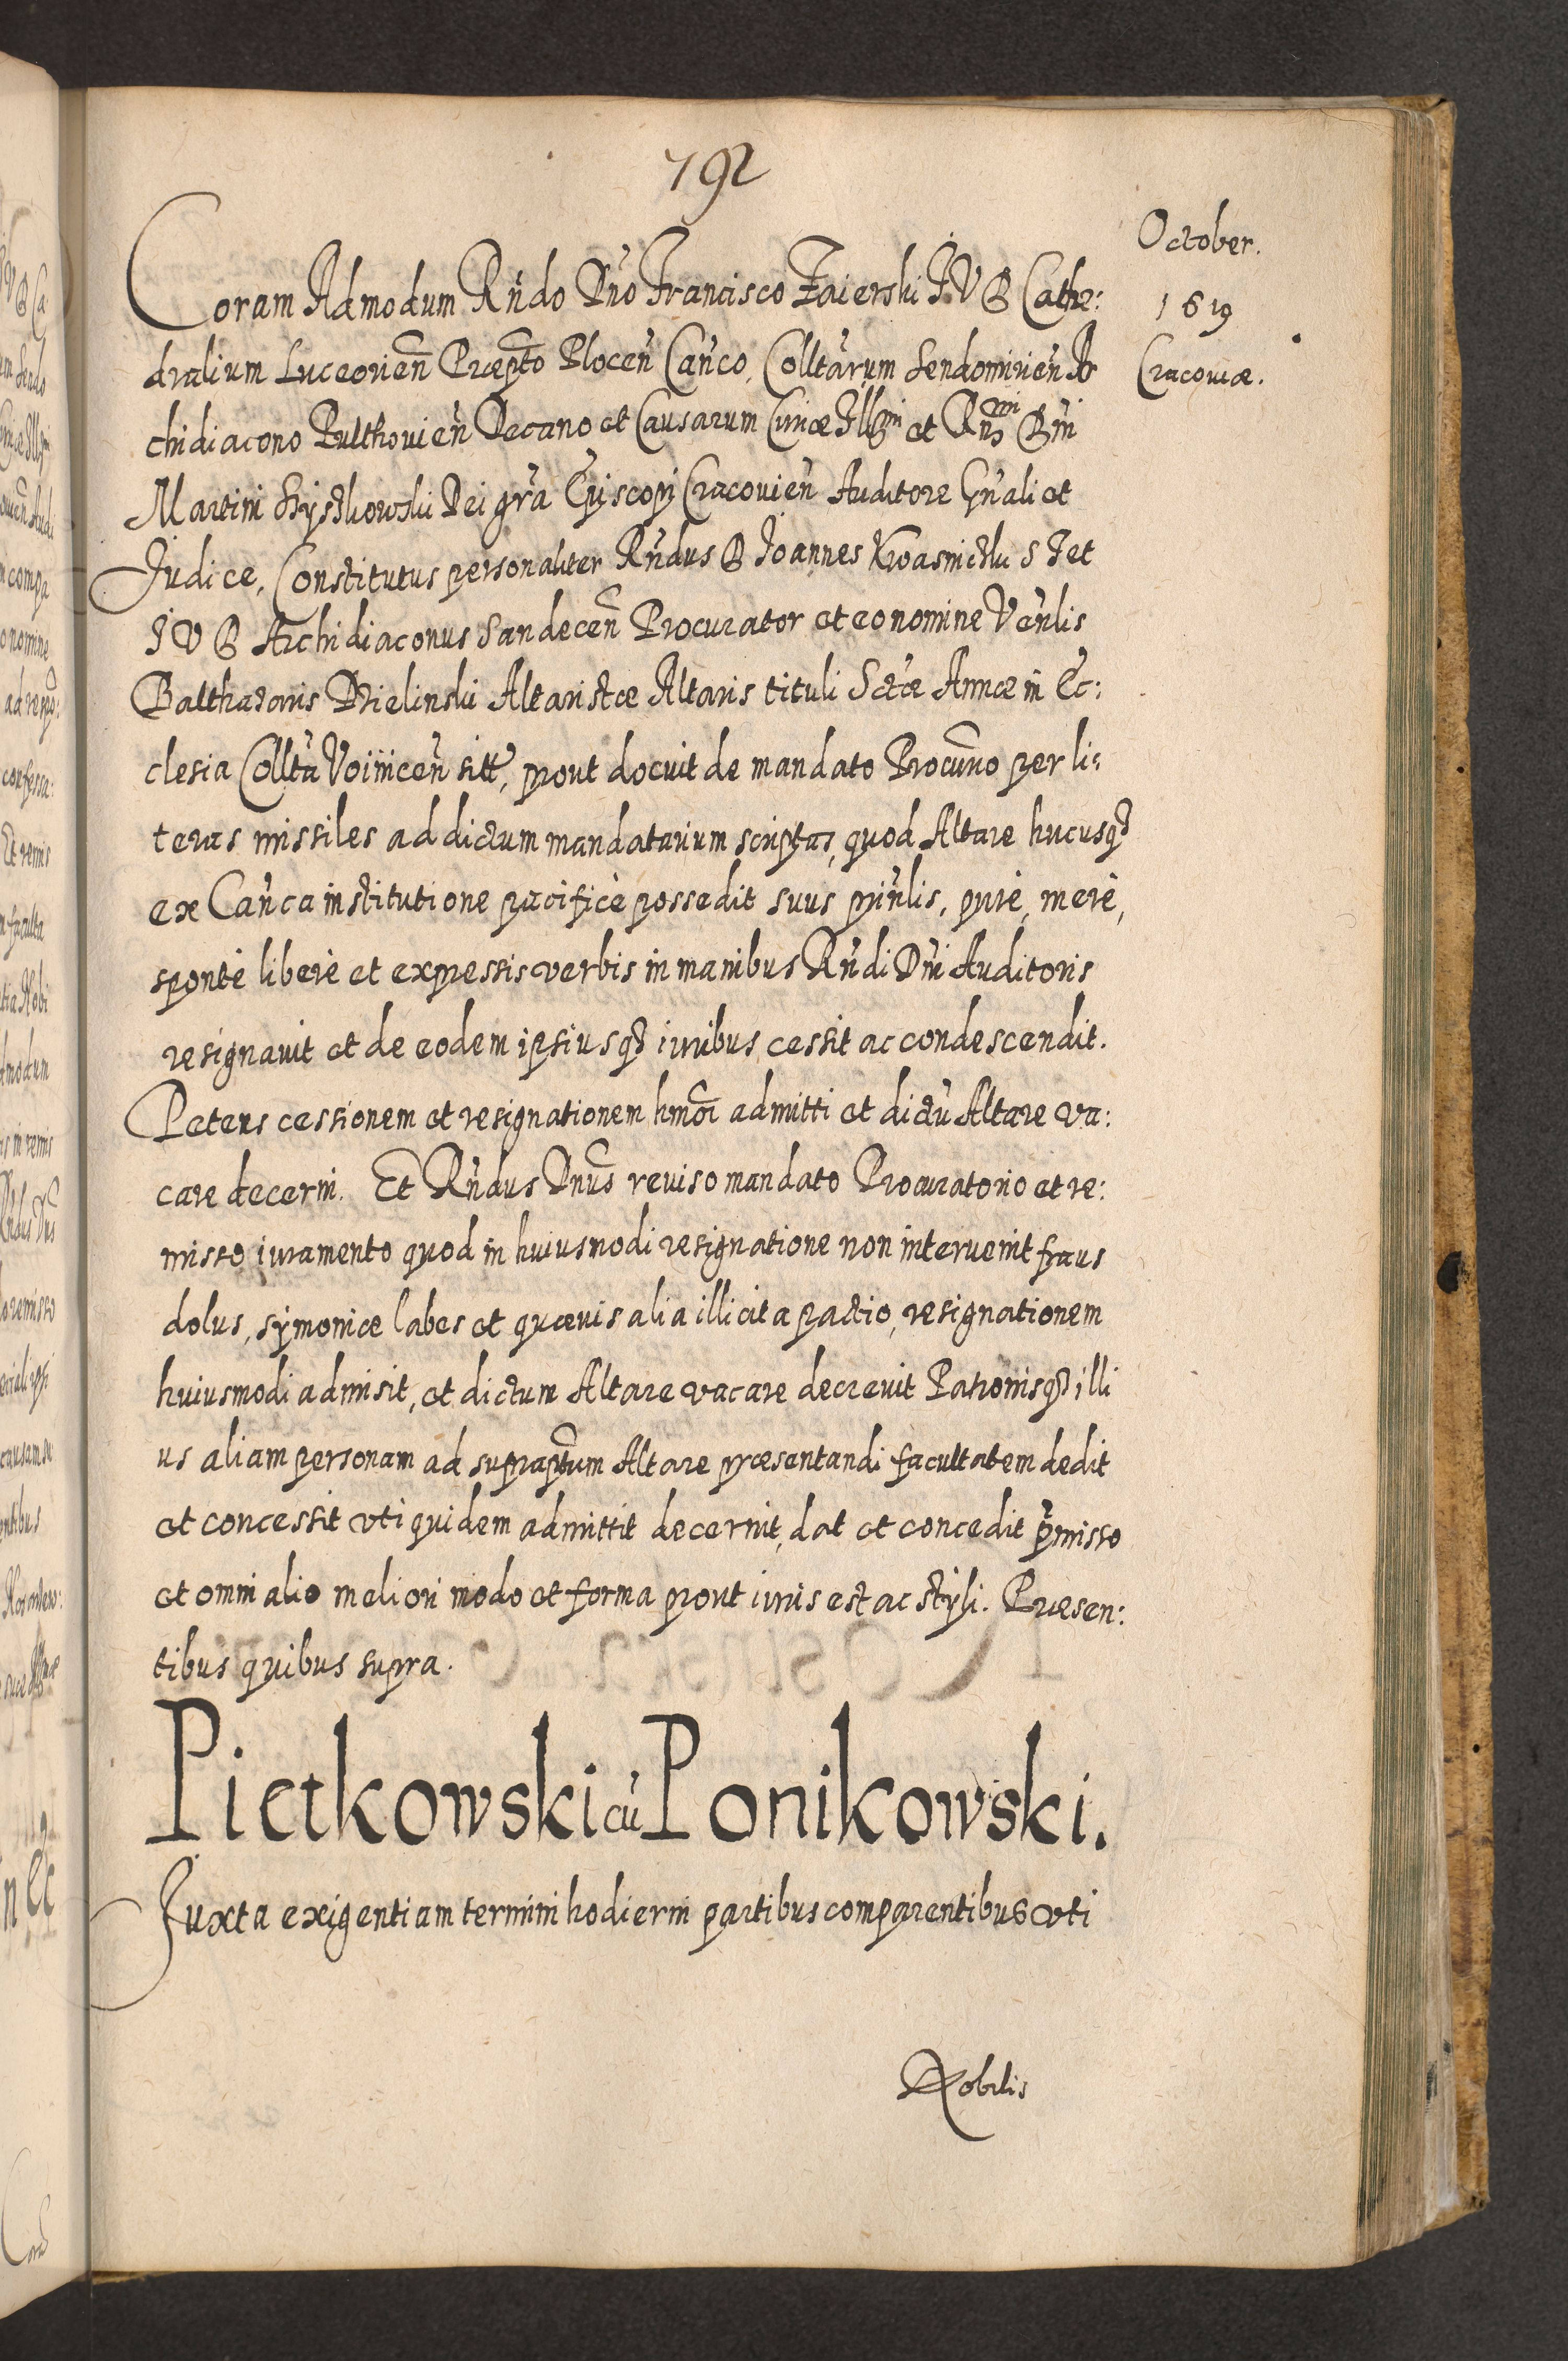 792
October.
1619
Cracouiæ.
Coram Admodum Rn̄do Dn̄o Francisco Zaierski I V D Cathe:
dralium Luceorien̄ Præpt̄o Plocen̄ Can̄co, Collt̄arum Sendomirien̄ Ar
chidiacono Pulthouien̄ Decano et Causarum Curiæ Illmi et Rn̄dmi Dn̄i
Martini Szyszkowski Dei gr̄a Episcopi Cracouien̄ Auditore Gn̄ali et
Judice, Constitutus personaliter Rn̄dus D Ioannes Kwasnicki S T et
I V D Archidiaconus Sandecen̄ Procurator et eo nomine Ven̄lis
Balthazaris Dzielinski Altaristæ Altaris tituli S̄ctæ Annæ in Ec:
clesia Collt̄a Voinicen̄ sitt, prout docuit de mandato Procur̄no per li:
teras missiles ad dictum mandatarium scriptas, quod Altare hucusq3
ex Can̄ca institutione pacificè possedit suus prin̄lis, purè, merè,
spontè liberè et expressis verbis in manibus Rn̄di Dn̄i Auditoris
resignauit et de eodem ipsiusq3 iuribus cessit ac condescendit.
Petens cessionem et resignationem hmōi admitti et dictū Altare va:
care decerni. Et Rn̄dus Dnūs reuiso mandato Procuratorio et re:
misso iuramento quod in huiusmodi resignatione non interuenit fraus
dolus, symoniæ labes et quæuis alia illicita pactio, resignationem
huiusmodi admisit, et dictum Altare vacare decreuit Patronisq3 illi
us aliam personam ad suprapt̄um Altare præsentandi facultatem dedit
et concessit vti quidem admittit decernit, dat et concedit p̄misso
et omni alio meliori modo et forma prout iuris est ac styli. Præsen:
tibus quibus supra.
Pietkowski cū Ponikowski.
Juxta exigentiam termini hodierni partibus comparentibus vti
Nobilis